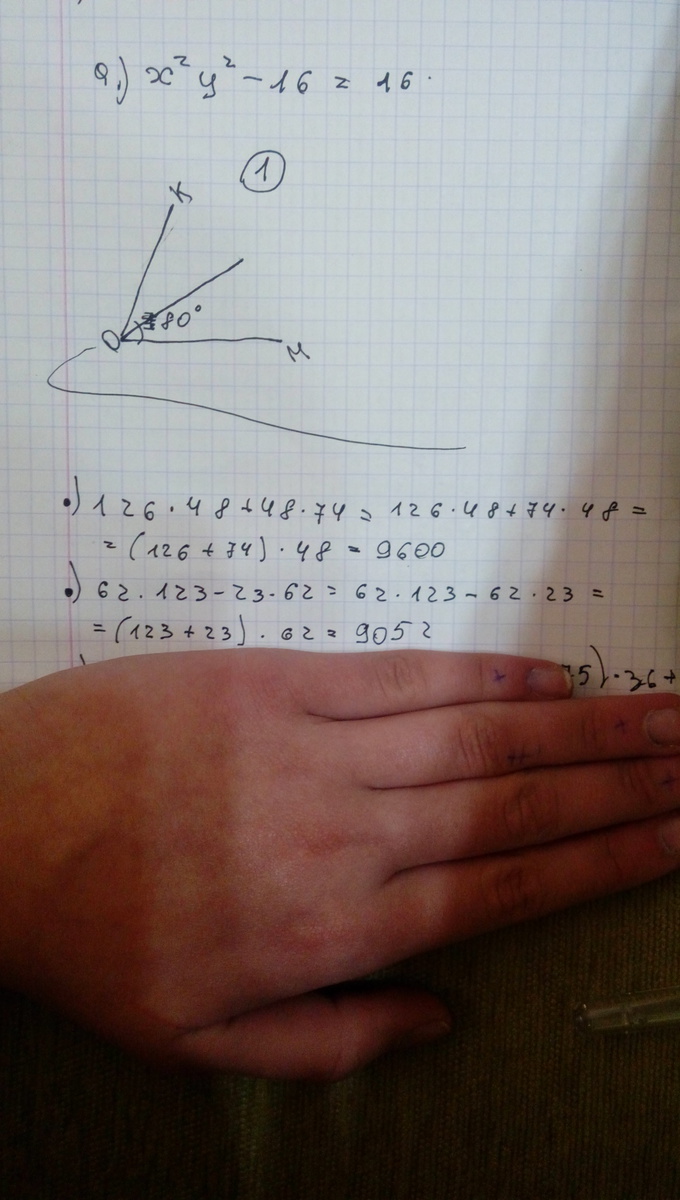 a.) x²y² - 16 = 16.
1
K
80°
O
M
•) 126·48+48·74 = 126·48+74·48 =
= (126+74)·48 = 9600
•) 62·123-23·62 = 62·123-62·23 =
= (123+23)·62 = 9052
5)·36+